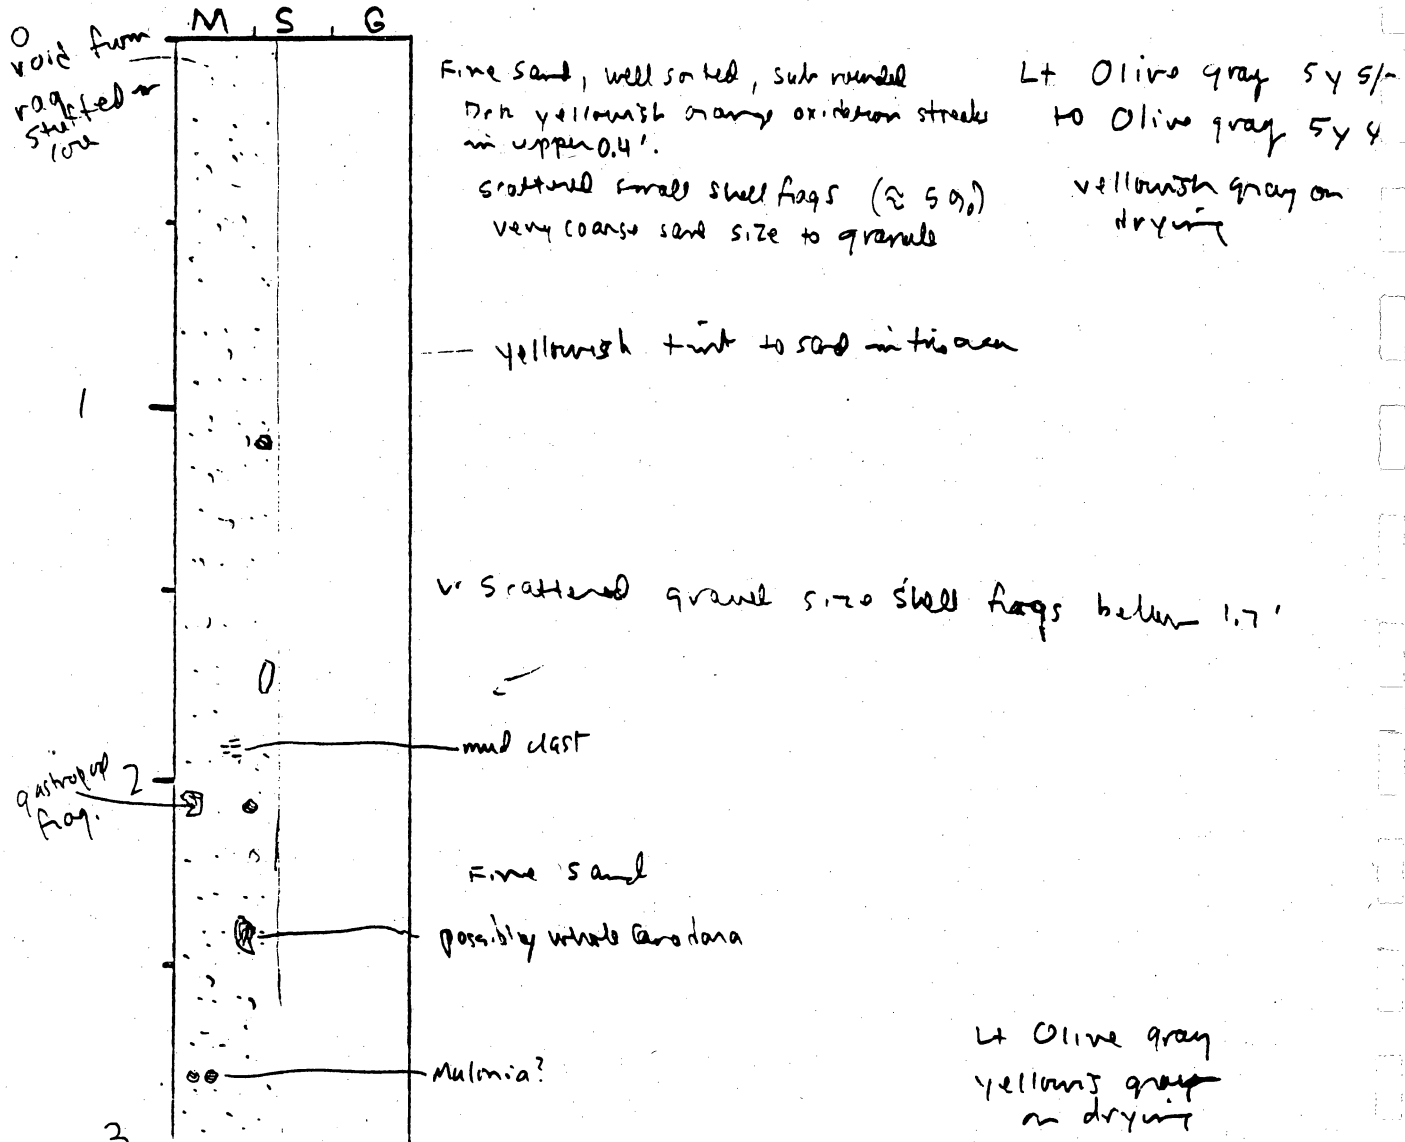 M S G
0
void from
rag
stuffed
core
Fine sand, well sorted, sub rounded
Drk yellowish orange oxidation streaks
in upper 0.4'.
scattered small shell frags (≈ 5%)
very coarse sand size to granule
Lt Olive gray 5 Y 5/
to Olive gray 5 Y 4
yellowish gray on
drying
yellowish tint to sand in this area
1
v. scattered gravel size shell frags below 1.7'
mud clast
2
gastropod
frag.
Fine sand
possibly whole
Mulinia?
Lt Olive gray
yellowis gray
on drying
3